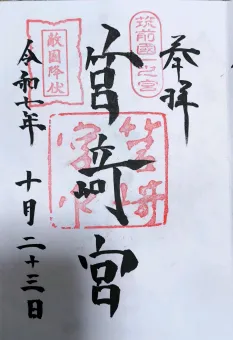 奉拝
筑前國一之宮
筥崎宮
敵国降伏
令和七年
十月二十三日